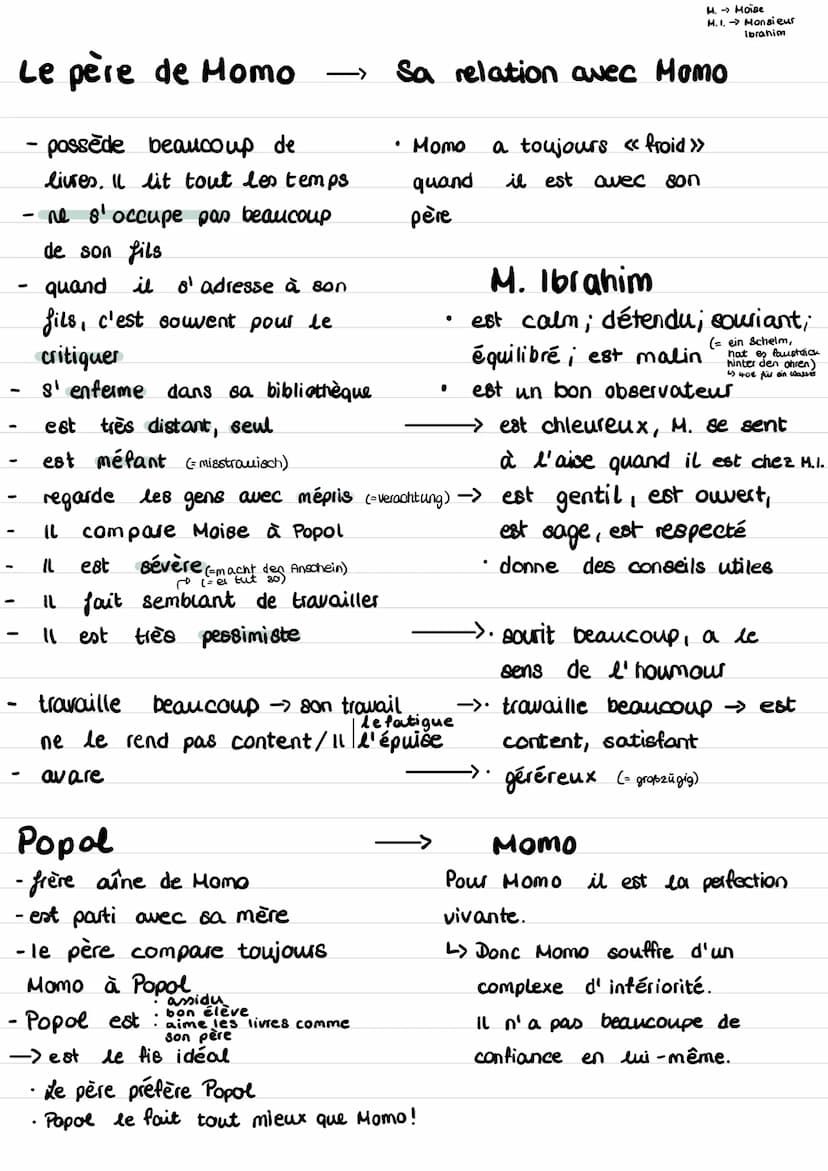 M. → Moïse
M.I. → Monsieur
Ibrahim
Le père de Momo → Sa relation avec Momo
- possède beaucoup de
livres. Il lit tout les temps
- ne s'occupe pas beaucoup
de son fils
- quand il s'adresse à son
fils, c'est souvent pour le
critiquer
- s'enferme dans sa bibliothèque
- est très distant, seul
- est méfant (= misstrauisch)
- regarde les gens avec mépris (= verachtung) →
- Il compare Moise à Popol
- Il est sévère (= macht den Anschein)
(= es tut so)
- Il fait semblant de travailler
- Il est très pessimiste
- travaille beaucoup → son travail
ne le rend pas content/Il le fatigue
l'épuise
- avare
• Momo a toujours « froid »
quand il est avec son
père
M. Ibrahim
• est calm; détendu; souriant;
équilibré; est malin (= ein Schelm,
hat es faustdick
hinter den ohren)
↳ 40€ für ein Wasser
• est un bon observateur
→ est chleureux, M. se sent
à l'aise quand il est chez M.I.
est gentil, est ouvert,
est sage, est respecté
• donne des conseils utiles
→• sourit beaucoup, a le
sens de l'houmour
→• travaille beaucoup → est
content, satisfant
→• géréreux (= großzügig)
Popol → Momo
- frère aîne de Momo
- est parti avec sa mère
- le père compare toujours
Momo à Popol
- Popol est : • assidu
• bon élève
• aime les livres comme
son père
→ est le fis idéal
• Le père préfère Popol
• Popol le fait tout mieux que Momo!
Pour Momo il est la perfection
vivante.
↳ Donc Momo souffre d'un
complexe d'infériorité.
Il n'a pas beaucoupe de
confiance en lui-même.